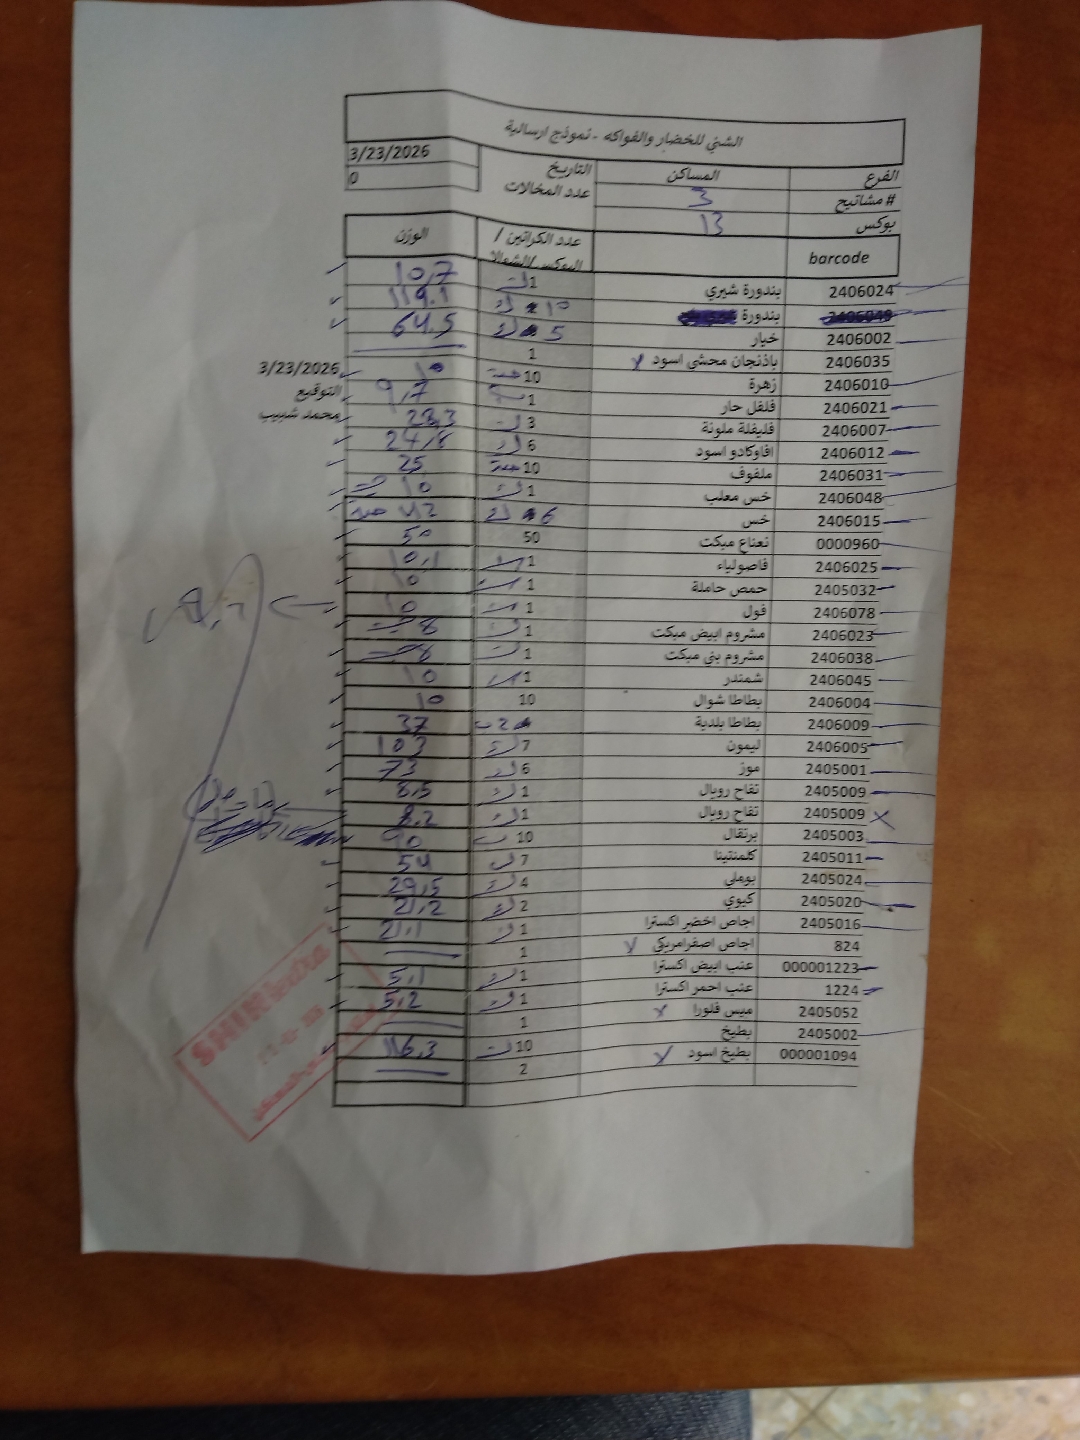 الشني للخضار والفواكه - نموذج ارسالية
الفرع المساكن التاريخ 3/23/2026
# مشاتيح 3 عدد المخالات 0
بوكس 13
barcode عدد الكراتين / البوكس/الشوالا الوزن
2406024 بندورة شيري 1 10,7
2406049 بندورة 10 119.1
2406002 خيار 5 64,5
2406035 باذنجان محشي اسود x 1
2406010 زهرة 10 10
2406021 فلفل حار 1 9,7
2406007 فليفلة ملونة 3 28,3
2406012 افاوكادو اسود 6 24,8
2406031 ملفوف 10 25
2406048 خس معلب 1 10
2406015 خس 6 42
0000960 نعناع مبكت 50 50
2406025 فاصولياء 1 10,1
2405032 حمص حاملة 1 10
2406078 فول 1 10
2406023 مشروم ابيض مبكت 1 8
2406038 مشروم بني مبكت 1 8
2406045 شمندر 1 10
2406004 بطاطا شوال 10 10
2406009 بطاطا بلدية 2 37
2406005 ليمون 7 103
2405001 موز 6 73
2405009 تفاح رويال 1 8,5
2405009 تفاح رويال 1 8,2
2405003 برتقال 10 90
2405011 كلمنتينا 7 54
2405024 بوملي 4 29,5
2405020 كيوي 2 21,2
2405016 اجاص اخضر اكسترا 1 21,1
824 اجاص اصفرامريكي x 1
000001223 عنب ابيض اكسترا 1 5,1
1224 عنب احمر اكسترا 1 5,2
2405052 ميس فلورا x 1
2405002 بطيخ 10 116,3
000001094 بطيخ اسود x 2
3/23/2026
التوقيع
محمد شبيب